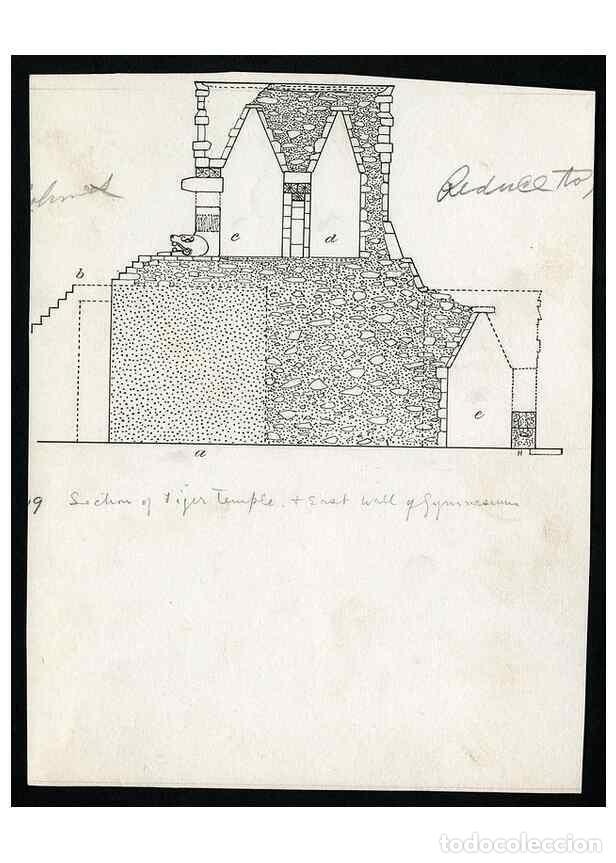 Reduce to
b
c
d
e
a
H
9 Section of Tiger Temple. + East Wall of Gymnasium
todocoleccion